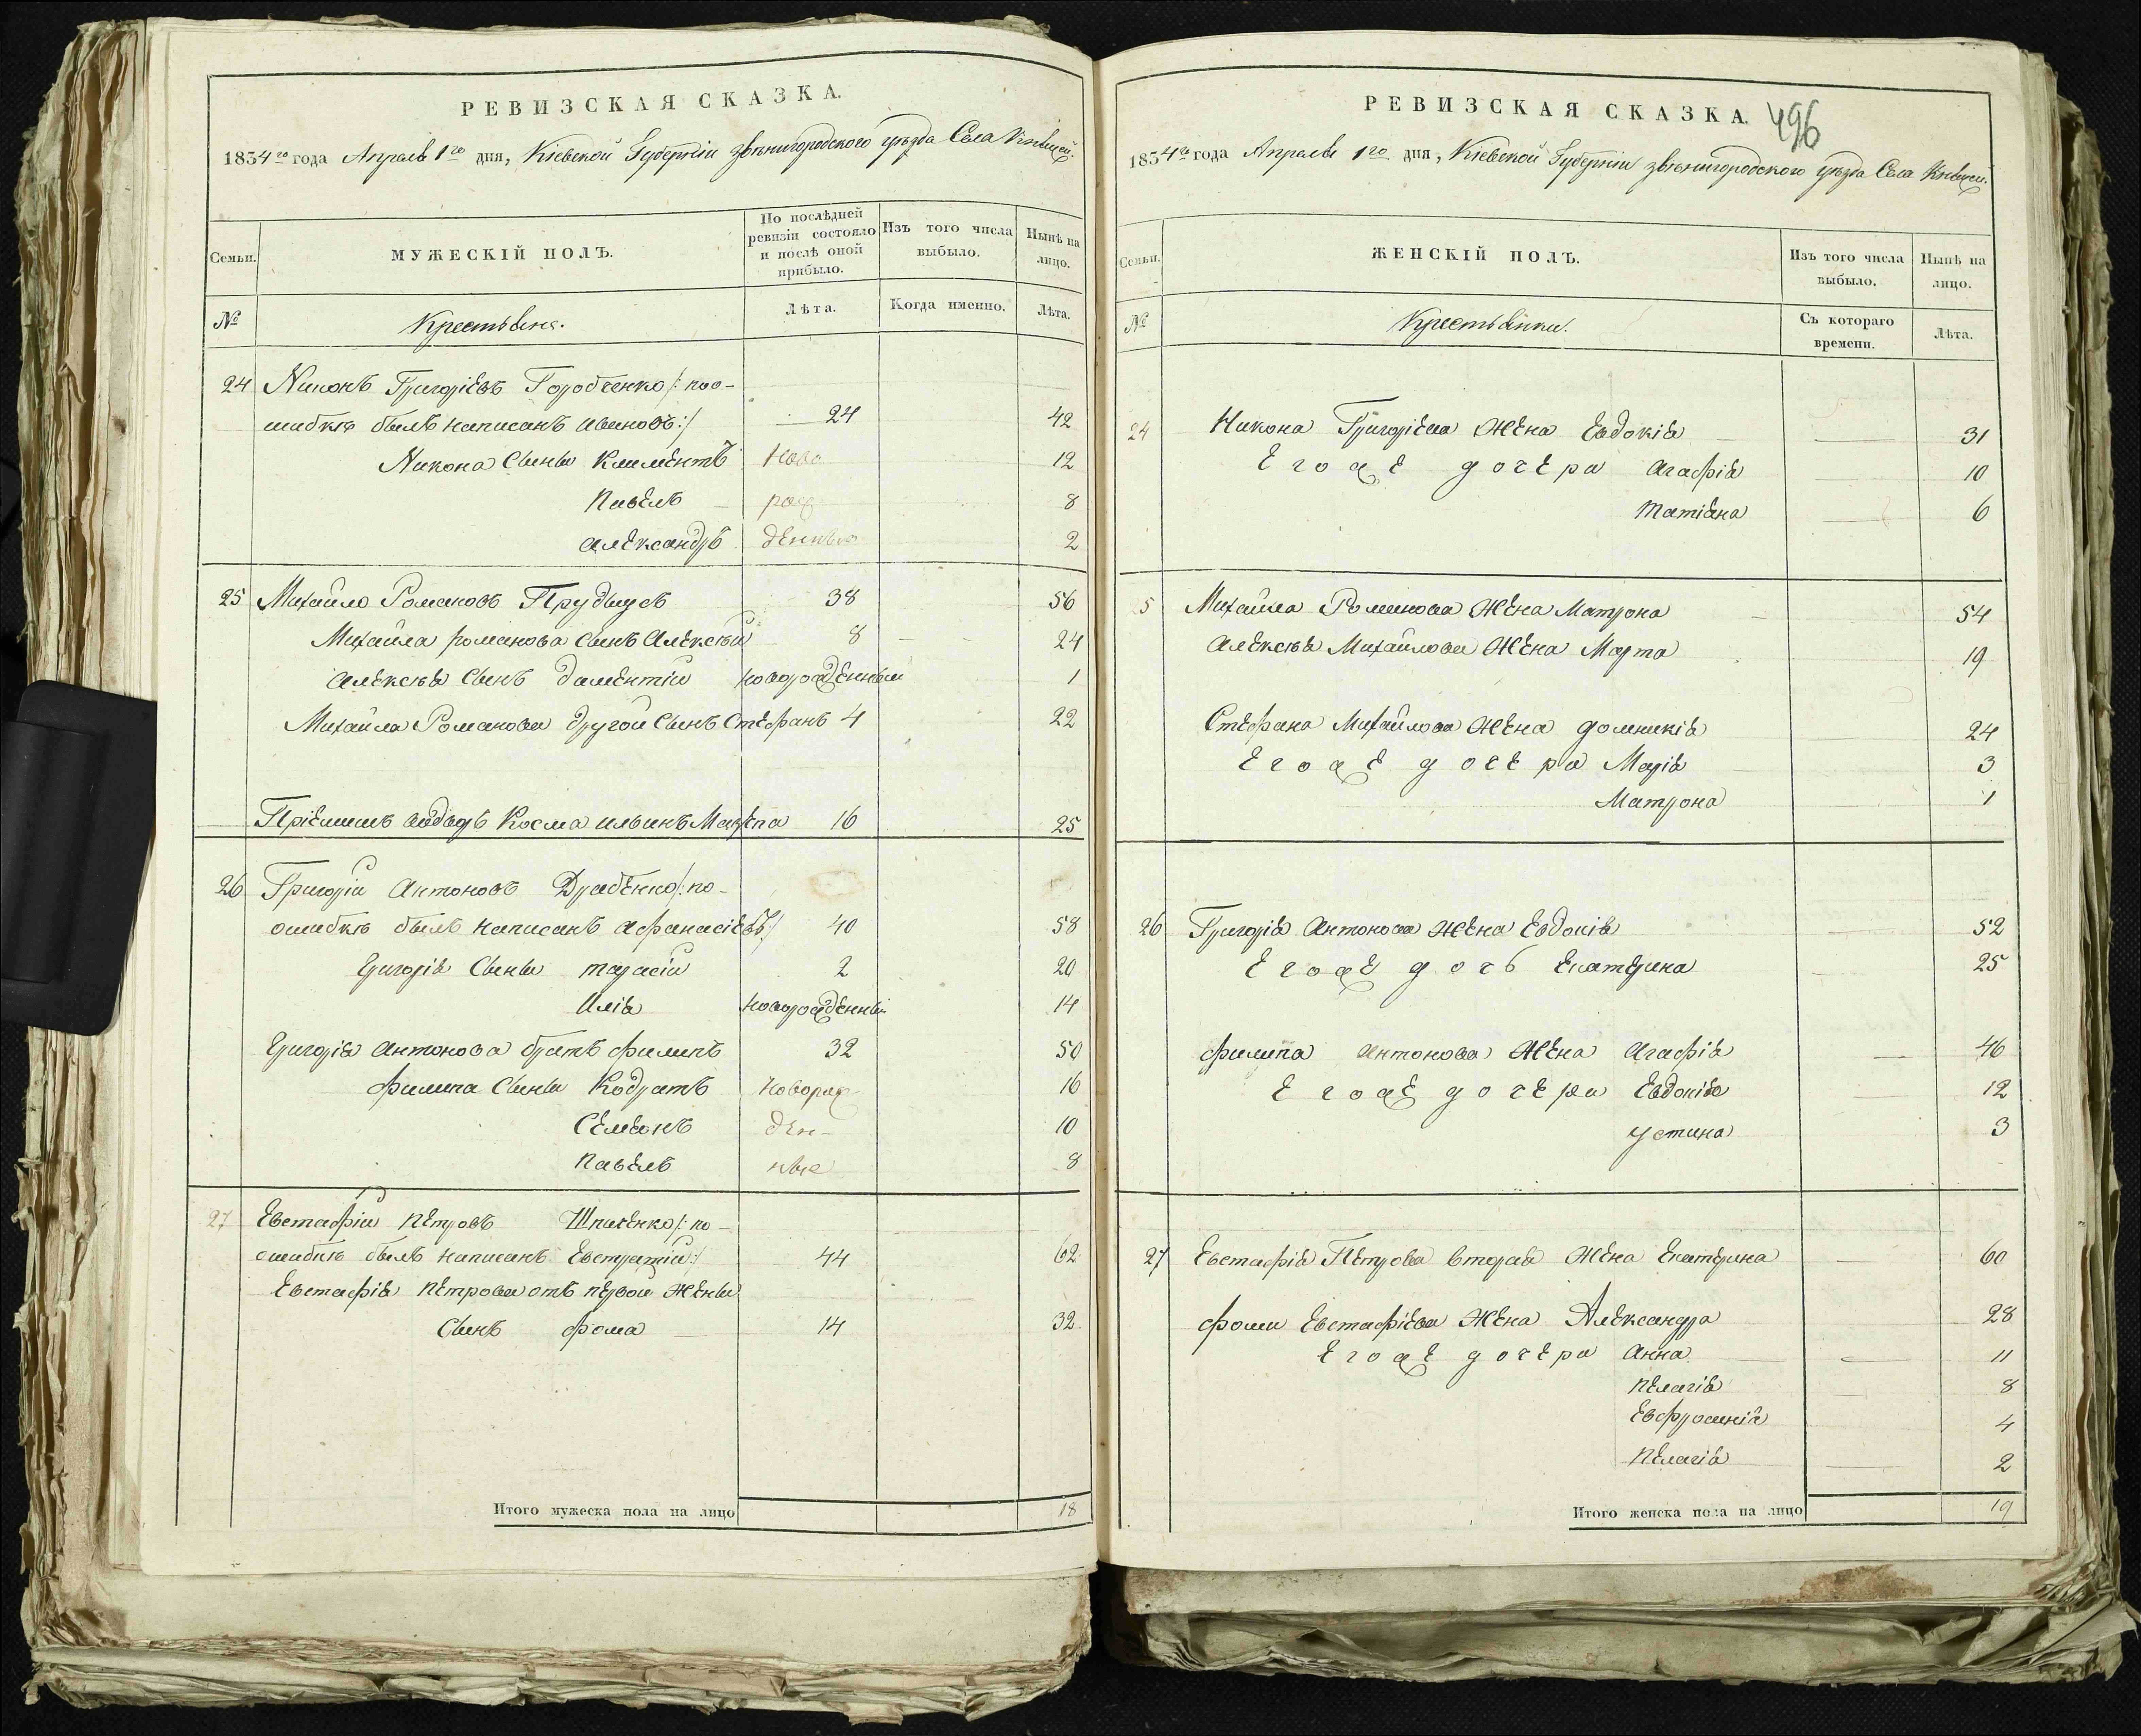 РЕВИЗСКАЯ СКАЗКА.
1834го года Апреля 1го дня, Кіевской Губерніи звѣнигородского уѣзда Села
Семьи.
МУЖЕСКІЙ ПОЛЪ.
По послѣдней ревизіи состояло и послѣ оной прибыло.
Изъ того числа выбыло.
Нынѣ на лицо.
№
Крестьяне.
Лѣта.
Когда именно.
Лѣта.
24 Никонъ Григоріевъ Городченко /: поо-
шибкѣ былъ написанъ Ивановъ :/ 24 42
Никона Сыны Климентъ Ново 12
Павелъ рож 8
Александръ денные 2
25 Михайло Романовъ 38 56
Михайла романова Сынъ Алексѣй 8 24
Алексѣя Сынъ Даментій новорожденный 1
Михайла Романова другой Сынъ Стефанъ 4 22
Пріемишъ Косма ильинъ Мазепа 16 25
26 Григорій Антоновъ Драбенко /: по-
ошибкѣ былъ написанъ Афанасіевъ :/ 40 58
Григорія Сыны тарасій 2 20
Илія новорожденный 14
Григорія Антонова братъ филипъ 32 50
филипа Сыны Кодратъ Новорож 16
Семеонъ ден- 10
Павелъ ные 8
27 Евстафій Петровъ Шпиченко /: по-
ошибкѣ былъ написанъ Евстратій :/ 44 62
Евстафія Петрова отъ первой жены
Сынъ фома 14 32
Итого мужеска пола на лицо 18
РЕВИЗСКАЯ СКАЗКА.
496
1834го года Апреля 1го дня, Кіевской Губерніи звѣнигородского уѣзда Села
Семьи.
ЖЕНСКІЙ ПОЛЪ.
Изъ того числа выбыло.
Нынѣ на лицо.
№
Крестьянки.
Съ котораго времени.
Лѣта.
24 Никона Григоріева жена Евдокія 31
Егоже дочери Агафія 10
Татіяна 6
5 Михайла Романова жена Матрона 54
Алексѣя Михайлова жена Марта 19
Стефана Михайлова жена домникія 24
Егоже дочери Марія 3
Матрона 1
26 Григорія Антонова жена Евдокія 52
Егоже дочь Екатерина 25
филипа Антонова жена Агафія 46
Егоже дочери Евдокія 12
устина 3
27 Евстафія Петрова вторая жена Екатерина 60
фомы Евстафіева жена Александра 28
Егоже дочери Анна 11
Пелагія 8
Евфросинія 4
Пелагія 2
Итого женска пола на лицо 19